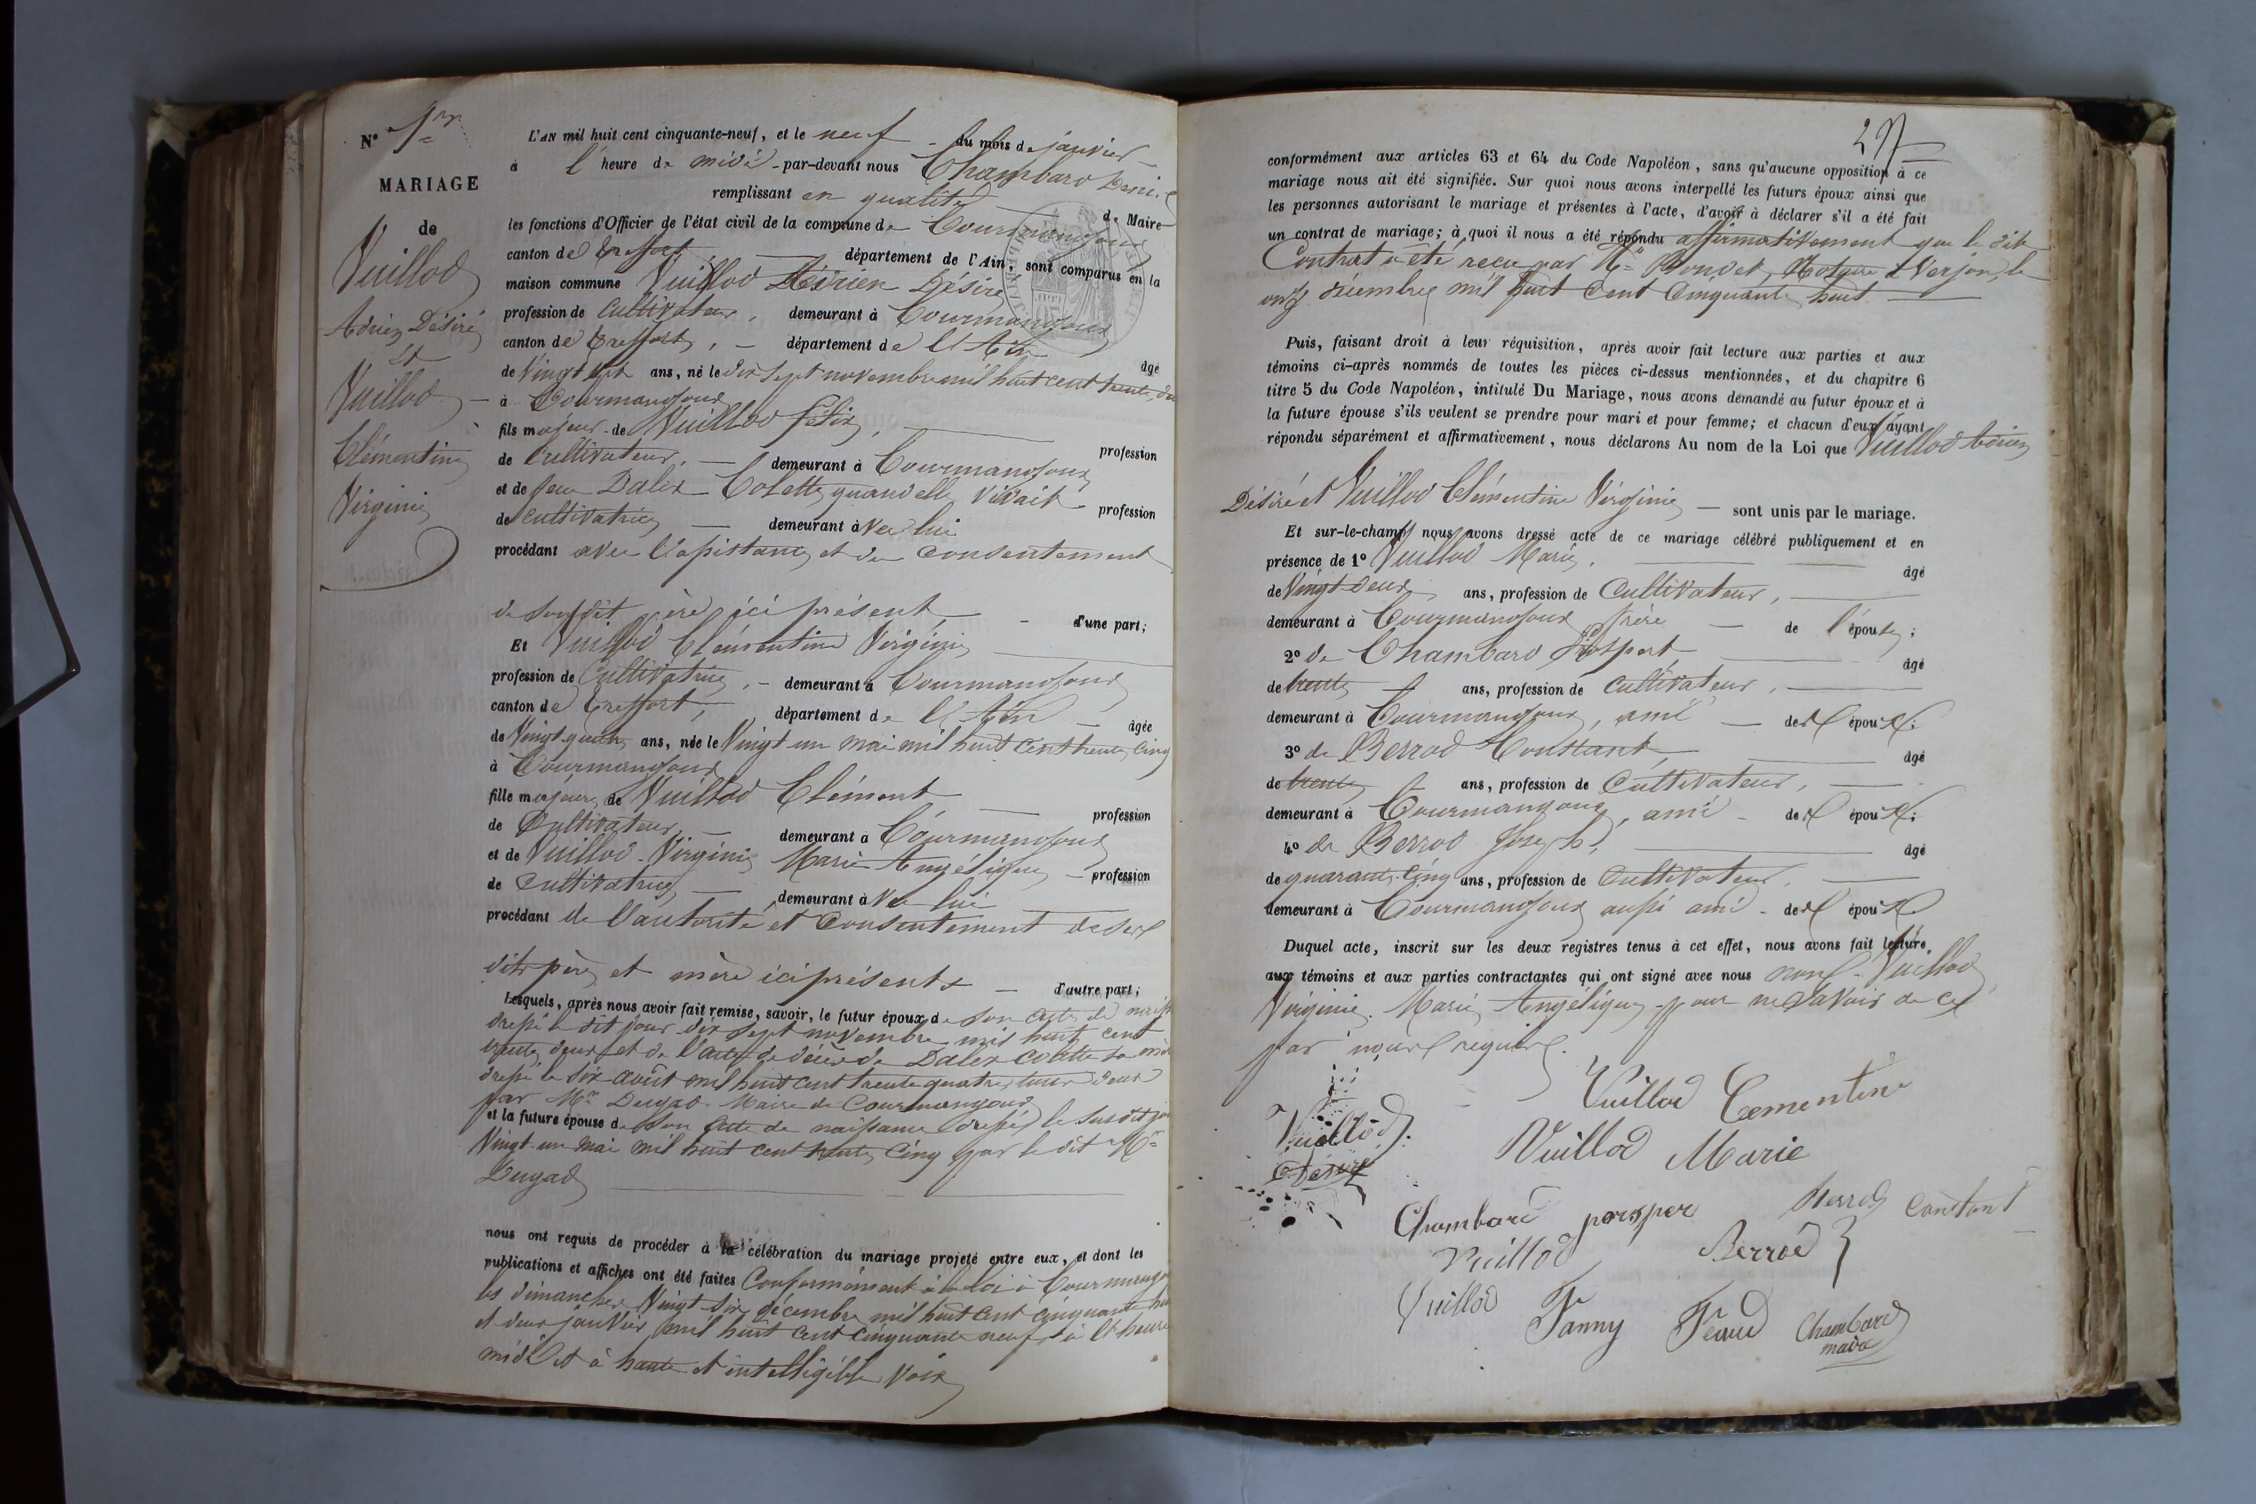 N° 1er
MARIAGE
de
Vuillod
Adrien Désiré
Et
Vuillod
Clémentine
Virginie
L'AN mil huit cent cinquante-neuf, et le neuf du mois de janvier
à l'heure de midi par-devant nous Chambard
remplissant en qualité de Maire
les fonctions d'Officier de l'état civil de la commune de Courmangoux
canton de Treffort, département de l'Ain, sont comparus en la
maison commune Vuillod Adrien Désiré
profession de Cultivateur, demeurant à Courmangoux
canton de Treffort, département de l'Ain âgé
de Vingt six ans, né le dix sept novembre mil huit cent trente deux
à Courmangoux
fils majeur de Vuillod Félix, profession
de Cultivateur, demeurant à Courmangoux
et de feue Dalex Colette, quand elle vivait profession
de cultivatrice demeurant avec lui
procédant avec l'assistance et du consentement
de son dit père, ici présent d'une part;
Et Vuillod Clémentine Virginie
profession de Cultivatrice, demeurant à Courmangoux
canton de Treffort, département de l'Ain âgée
de Vingt-quatre ans, née le Vingt un mai mil huit cent trente cinq
à Courmangoux
fille majeure de Vuillod Clément profession
de Cultivateur demeurant à Courmangoux
et de Vuillod Virginie Marie Angélique profession
de Cultivatrice demeurant avec lui
procédant de l'autorité et consentement de ses
dits père et mère ici présents d'autre part;
Lesquels, après nous avoir fait remise, savoir, le futur époux de son acte de naissance
dressé le dit jour dix sept novembre mil huit cent
trente deux et de l'acte de décès de Dalex Colette sa mère
dressé le six août mil huit cent trente quatre, tous deux
par Mr Dugad Maire de Courmangoux
et la future épouse de son acte de naissance dressé le susdit jour
Vingt-un mai mil huit cent trente cinq par le dit Mr
Dugad
nous ont requis de procéder à la célébration du mariage projeté entre eux, et dont les
publications et affiches ont été faites Conformément à la loi à Courmangoux
les dimanches Vingt six décembre mil huit cent cinquante huit
et deux janvier mil huit cent cinquante neuf à l'heure
midi et à haute et intelligible voix
27
conformément aux articles 63 et 64 du Code Napoléon, sans qu'aucune opposition à ce
mariage nous ait été signifiée. Sur quoi nous avons interpellé les futurs époux ainsi que
les personnes autorisant le mariage et présentes à l'acte, d'avoir à déclarer s'il a été fait
un contrat de mariage; à quoi il nous a été répondu affirmativement que le dit
Contrat a été reçu par Me Notaire à Verjon, le
onze décembre mil huit cent cinquante huit
Puis, faisant droit à leur réquisition, après avoir fait lecture aux parties et aux
témoins ci-après nommés de toutes les pièces ci-dessus mentionnées, et du chapitre 6
titre 5 du Code Napoléon, intitulé Du Mariage, nous avons demandé au futur époux et à
la future épouse s'ils veulent se prendre pour mari et pour femme; et chacun d'eux ayant
répondu séparément et affirmativement, nous déclarons Au nom de la Loi que Vuillod Adrien
Désiré et Vuillod Clémentine Virginie sont unis par le mariage.
Et sur-le-champ nous avons dressé acte de ce mariage célébré publiquement et en
présence de 1° Vuillod Marie, âgé
de Vingt-deux ans, profession de Cultivateur,
demeurant à Courmangoux frère de l'épouse;
2° de Chambard Prospert âgé
de trente ans, profession de Cultivateur,
demeurant à Courmangoux, ami des époux;
3° de Berrod Constant, âgé
de trente ans, profession de Cultivateur,
demeurant à Courmangoux, ami des époux;
4° de Berrod Joseph, âgé
de quarante cinq ans, profession de Cultivateur,
demeurant à Courmangoux aussi ami des époux.
Duquel acte, inscrit sur les deux registres tenus à cet effet, nous avons fait lecture
aux témoins et aux parties contractantes qui ont signé avec nous non Vuillod
Virginie Marie Angélique pour ne savoir de ce
par nous requise.
Vuillod Clementine
Vuillod
Désiré
Vuillod Marie
Chambard porsper
Berrod Constant
Vuillod
Berrod
Vuillod Fanny Feaud
Chambard
maire